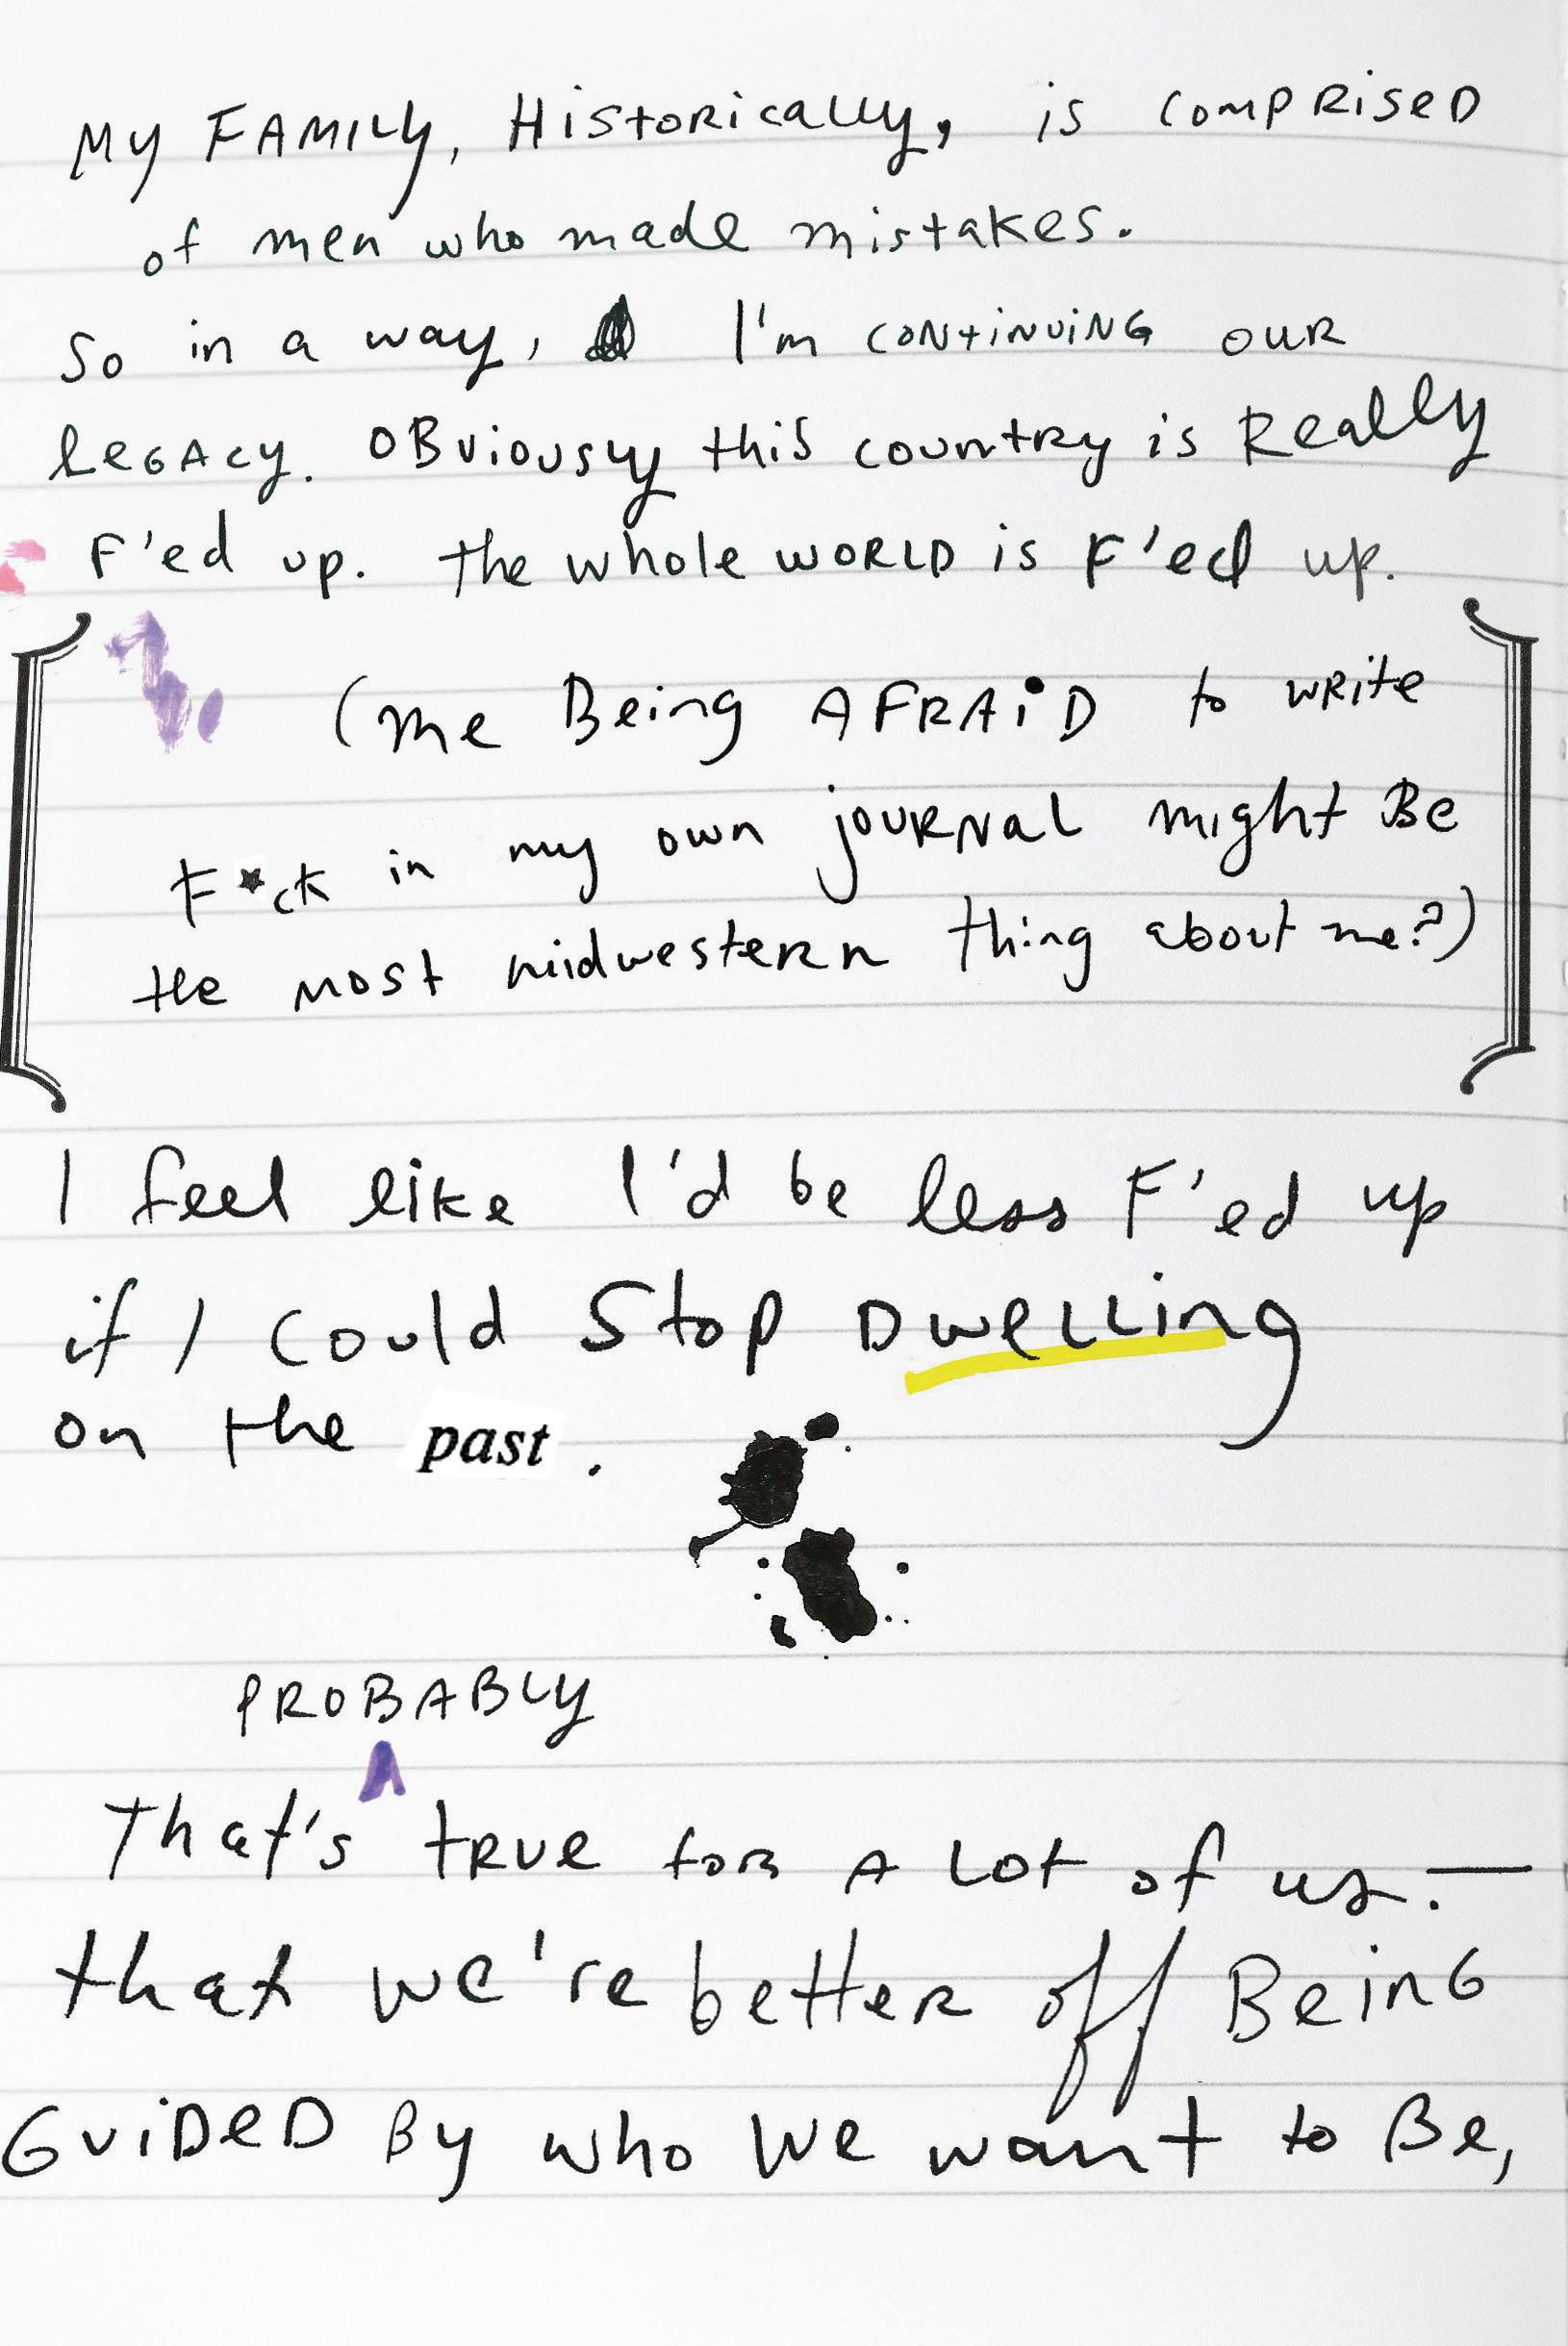 MY FAMILY, HISTORICALLY, is COMPRISED
of men who made mistakes.
So in a way, I'm CONTINUING OUR
LEGACY. OBViOUSLY this country is Really
F'ed up. the whole WORLD is F'ed up.
(me Being AFRAiD to WRite
F*ck in my own jOURNAL might Be
the MOST midwestern thing about me?)
I feel like I'd be less F'ed up
if I could Stop DWELLing
on the past.
PROBABLY
That's ^ tRUe for A Lot of us. —
that we're better off BeinG
GuiDeD By who We want to Be,